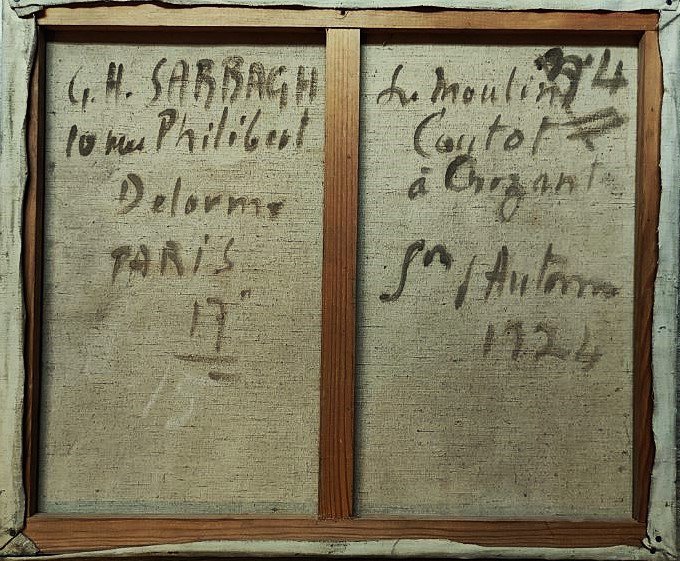 G. H. SABBAGH
10 rue Philibert
Delorme
PARIS
17
15
4
Le Moulin
Coutot
à Crozant
Sn d'Automne
1924